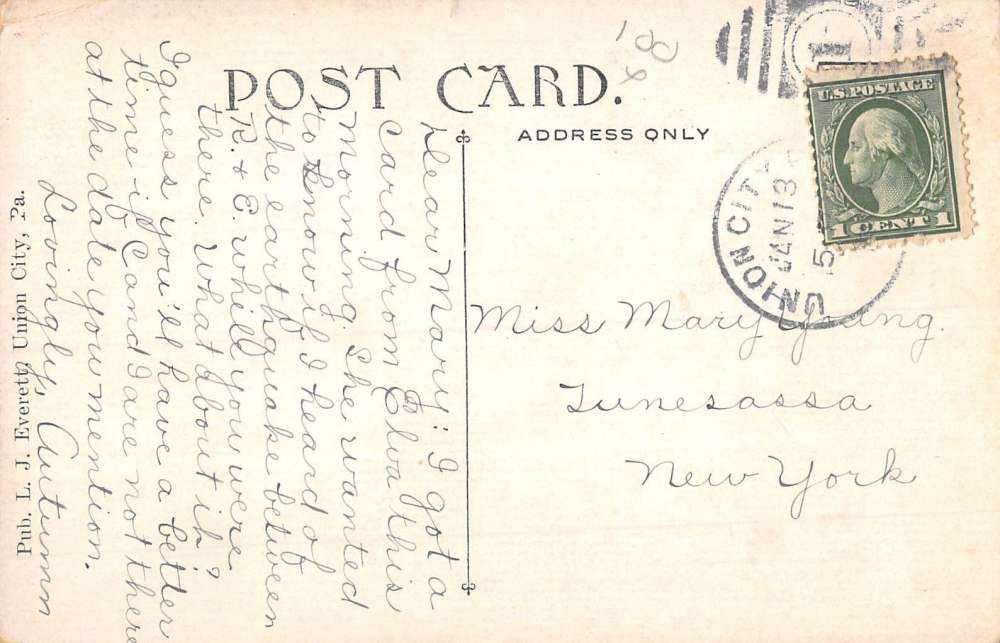 POST CARD.
ADDRESS ONLY
U.S. POSTAGE
1 CENT 1
UNION CITY
JAN 13
5
Dear Mary: I got a
card from Elva this
Morning. She wanted
to know if I heard of
the earthquake between
R. & E. whill you were
there. What about it?
I guess you'll have a better
time if C and I are not there
at the date you mention.
Lovingly, Autumn
Miss Mary Young.
Tunesassa
New York
Pub. L. J. Everett, Union City, Pa.